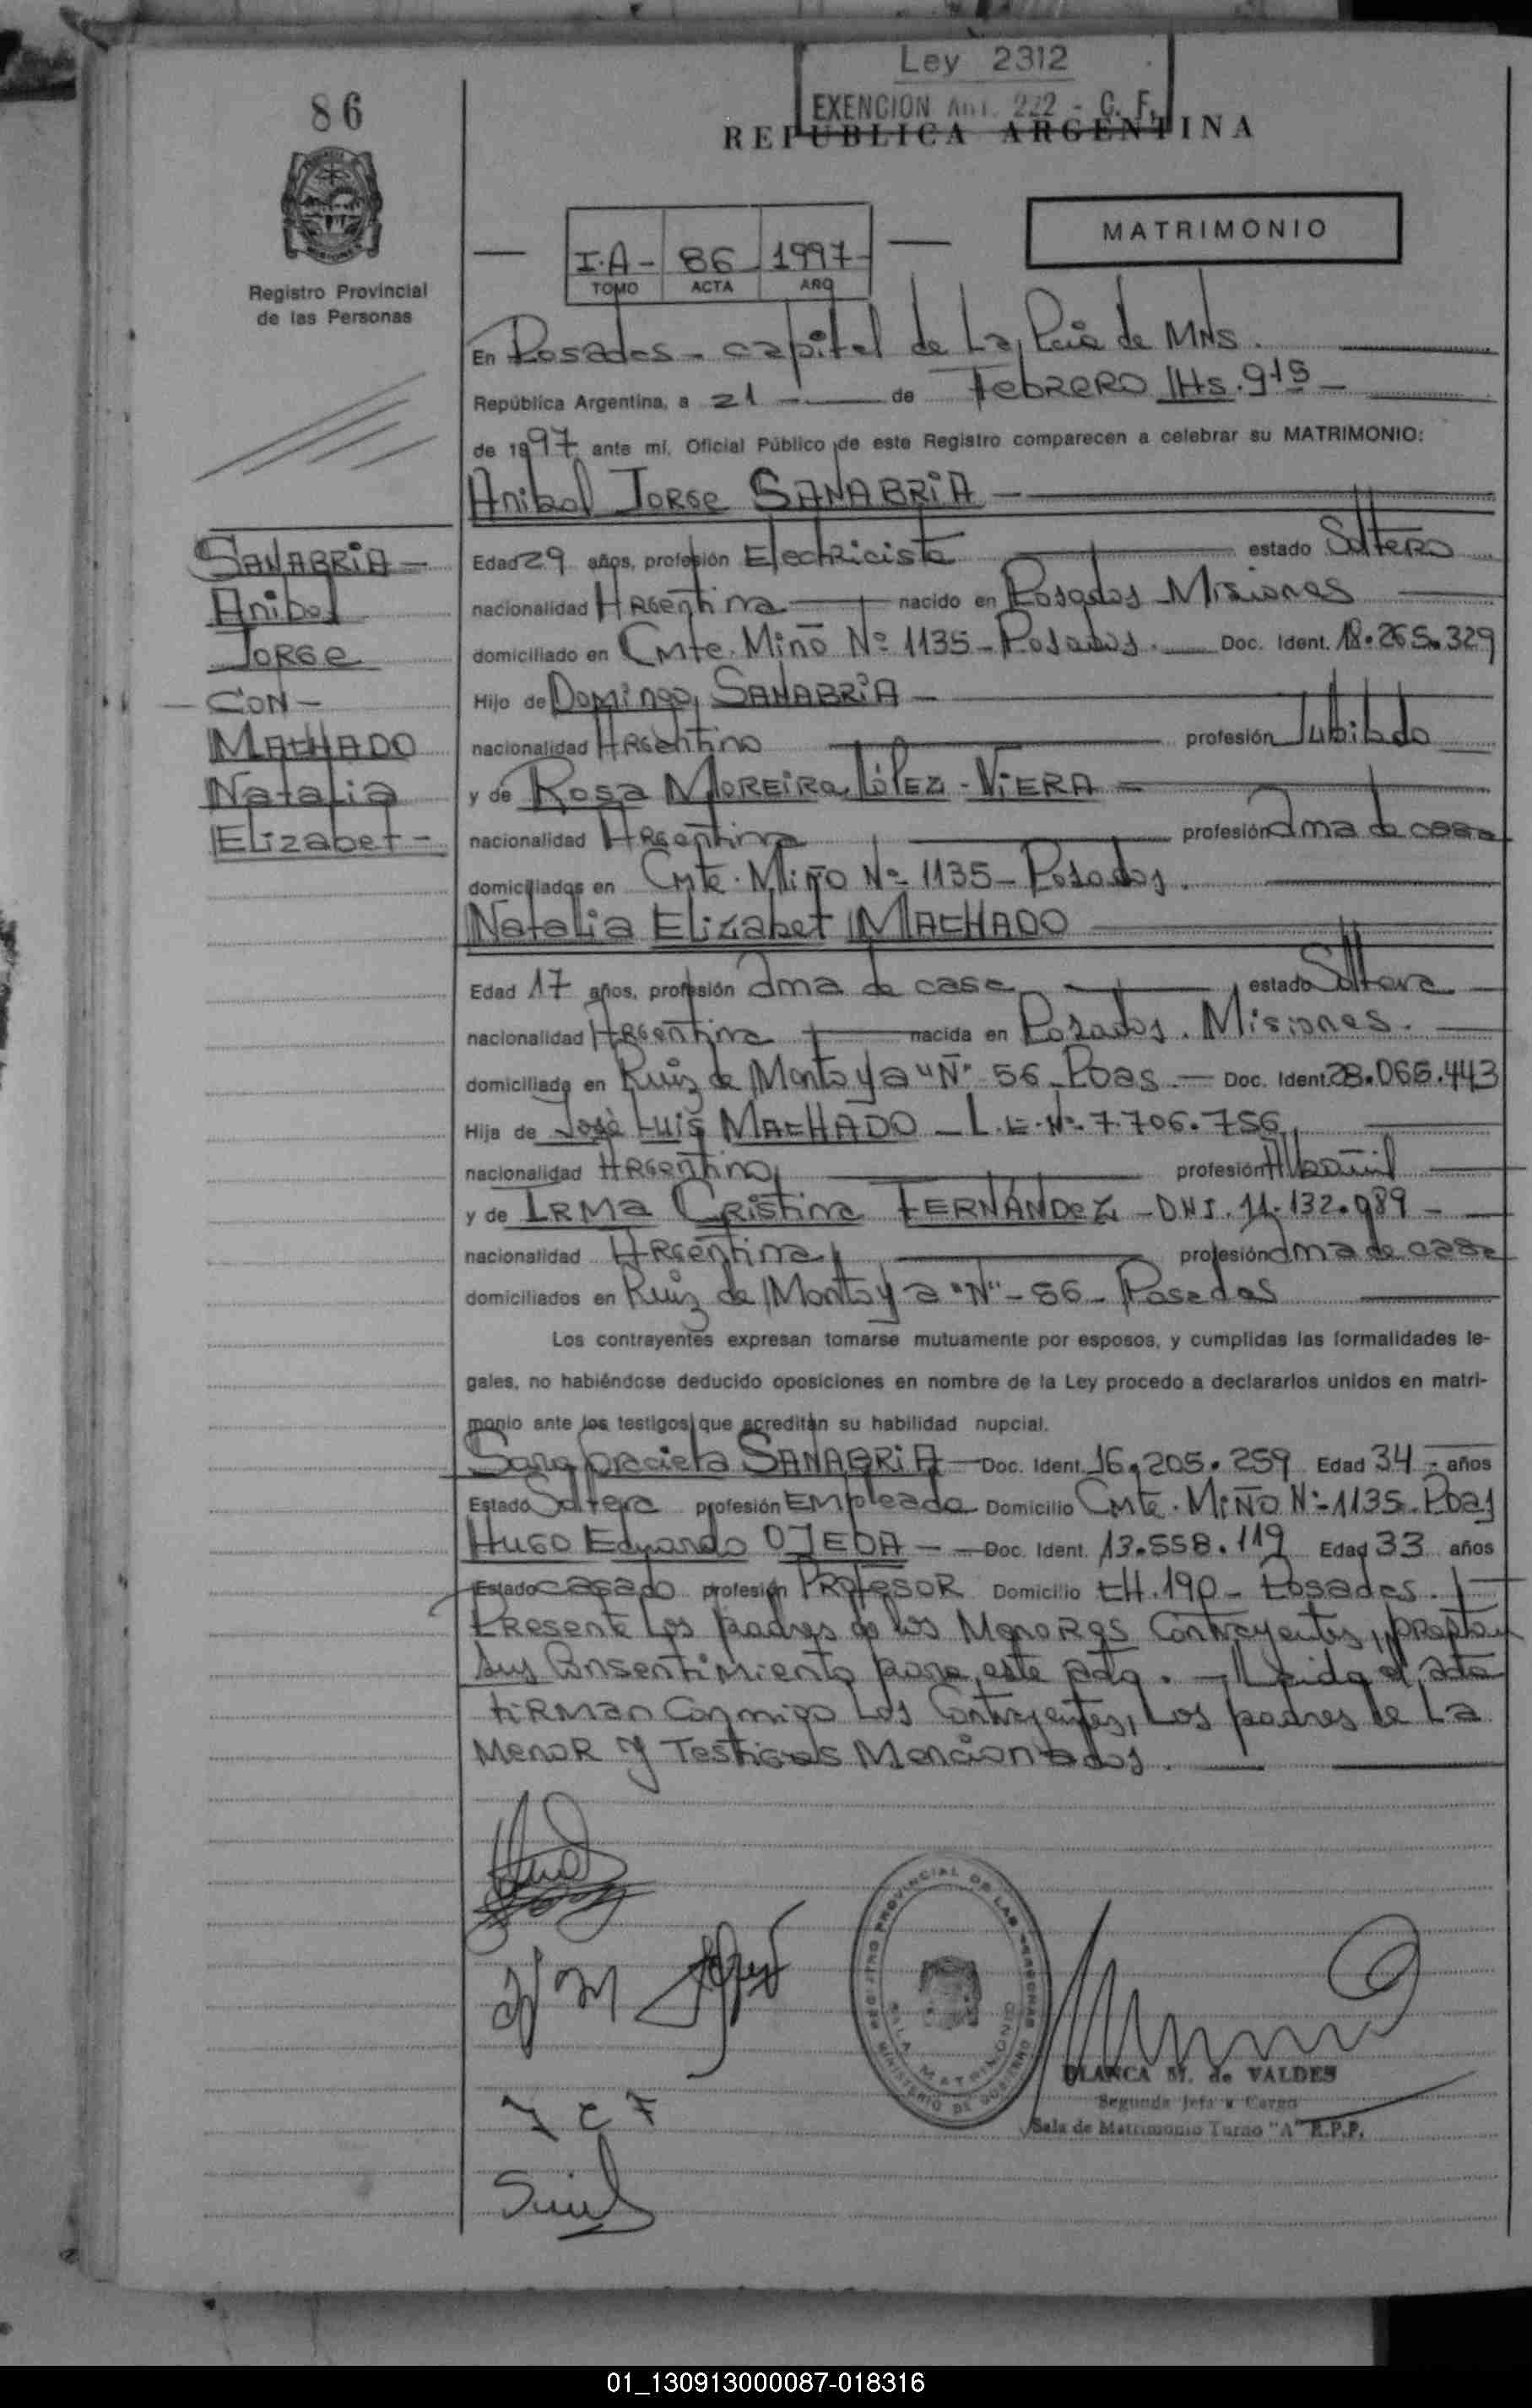 Ley 2312
EXENCION Art. 222 - C. F.
86
REPUBLICA ARGENTINA
MATRIMONIO
I·A - 86 1997
TOMO ACTA AÑO
Registro Provincial
de las Personas
En Posadas - capital de La Pcia de MNS.
República Argentina, a 21 de Febrero Hs. 9 15
de 1997 ante mí, Oficial Público de este Registro comparecen a celebrar su MATRIMONIO:
Anibal Jorge SANABRIA
SANABRIA -
Anibal
Jorge
- CON -
MACHADO
Natalia
Elizabet -
Edad 29 años, profesión Electricista estado Soltero
nacionalidad Argentina nacido en Posadas Misiones
domiciliado en Cmte. Miño Nº 1135 - Posadas. Doc. Ident. 18.265.329
Hijo de Domingo SANABRIA -
nacionalidad Argentino profesión Jubilado
y de Rosa Moreira López - VIERA
nacionalidad Argentina profesión ama de casa
domiciliados en Cmte. Miño Nº 1135 - Posadas.
Natalia Elizabet MACHADO
Edad 17 años, profesión ama de casa estado Soltera
nacionalidad Argentina nacida en Posadas. Misiones.
domiciliada en Ruiz de Montoya "N" 56 - Pdas. Doc. Ident. 28.066.443
Hija de José Luis MACHADO - L.E. Nº 7.706.756
nacionalidad Argentino profesión Albañil
y de Irma Cristina FERNÁNDEZ - DNI. 11.132.989 -
nacionalidad Argentina profesión ama de casa
domiciliados en Ruiz de Montoya "N" - 56 - Posadas
Los contrayentes expresan tomarse mutuamente por esposos, y cumplidas las formalidades le-
gales, no habiéndose deducido oposiciones en nombre de la Ley procedo a declararlos unidos en matri-
monio ante los testigos que acreditan su habilidad nupcial.
Sara Graciela SANABRIA Doc. Ident. 16.205.259 Edad 34 - años
Estado Soltera profesión Empleada Domicilio Cmte. Miño Nº 1135 - Pdas
Hugo Eduardo OJEDA - Doc. Ident. 13.558.119 Edad 33 años
Estado casado profesión Profesor Domicilio CH. 190 - Posadas.
Presente Los padres de los Menores Contrayentes, prestan
sus Consentimiento para este acto. - Leida el acta
firman Conmigo Los Contrayentes, Los padres de La
Menor y Testigos Mencionados.
REGISTRO PROVINCIAL DE LAS PERSONAS
SALA MATRIMONIO
MINISTERIO DE GOBIERNO
BLANCA M. de VALDES
Segunda Jefa a Cargo
Sala de Matrimonio Turno "A" R.P.P.
I C F
01_130913000087-018316